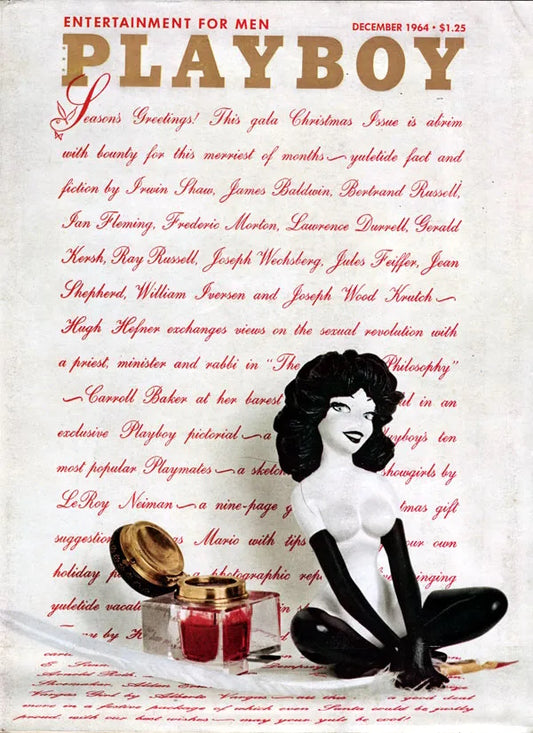 ENTERTAINMENT FOR MEN
DECEMBER 1964 • $1.25
PLAYBOY
Season's Greetings! This gala Christmas Issue is abrim
with bounty for this merriest of months — yuletide fact and
fiction by Irwin Shaw, James Baldwin, Bertrand Russell,
Ian Fleming, Frederic Morton, Lawrence Durrell, Gerald
Kersh, Ray Russell, Joseph Wechsberg, Jules Feiffer, Jean
Shepherd, William Iversen and Joseph Wood Krutch —
Hugh Hefner exchanges views on the sexual revolution with
a priest, minister and rabbi in "The Philosophy"
— Carroll Baker at her barest in an
exclusive Playboy pictorial — a ten
most popular Playmates — a sketch showgirls by
LeRoy Neiman — a nine-page gift
Mario with tips own
holiday a photographic
yuletide
by
Vargas Girl by Alberto Vargas a good deal
more in a festive package of which even Santa could be justly
proud, with our best wishes — may your yule be cool!